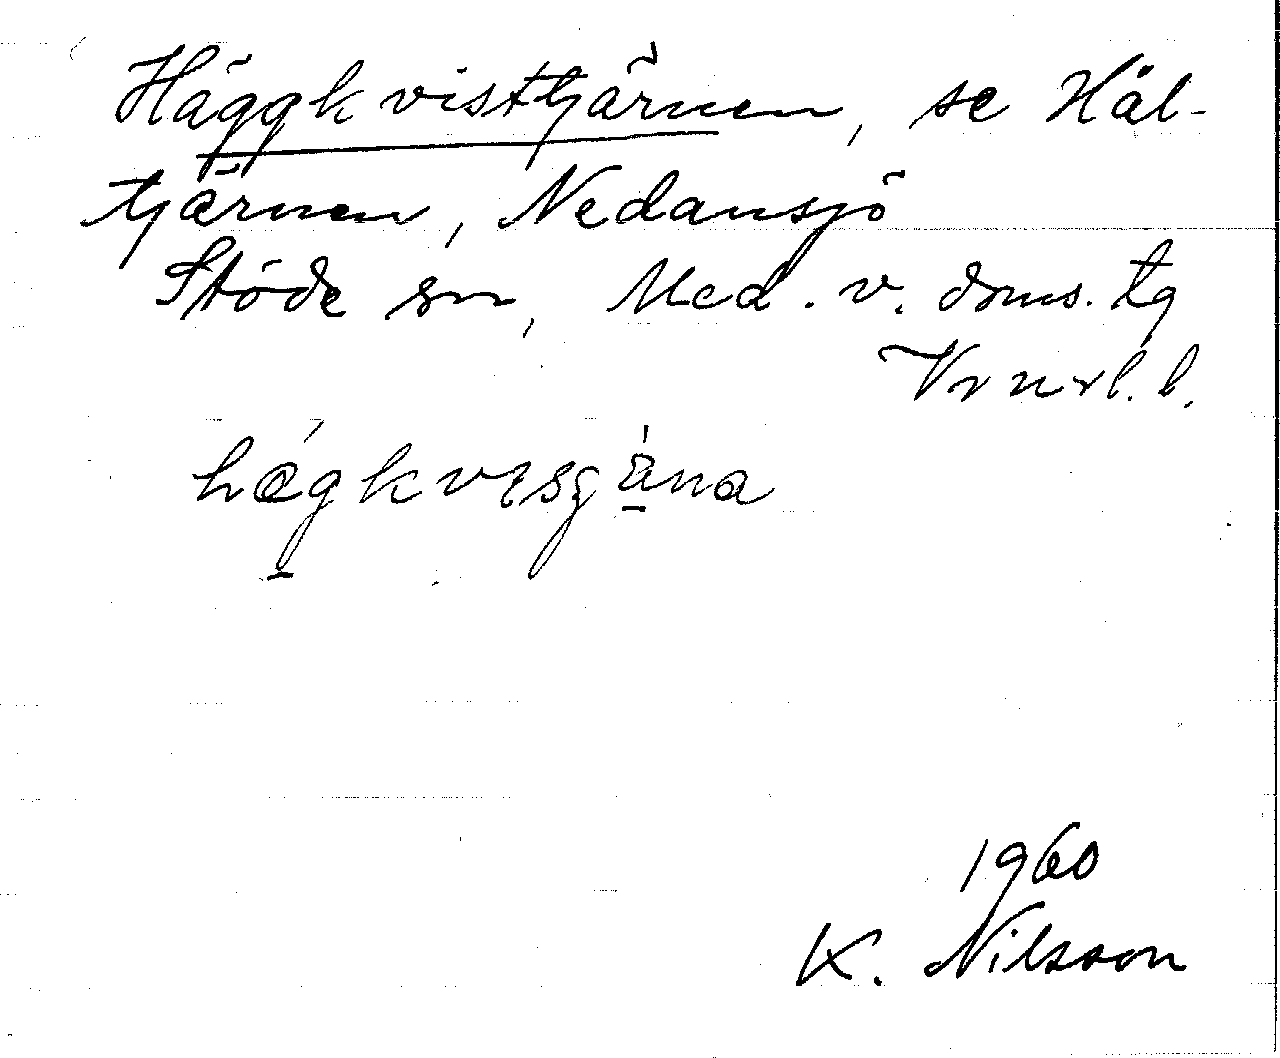 Häggkvisttjärnen, se Häl-
tjärnen, Nedansjö
Stöde sn, Med. v. doms. tg
Vrnrl. l.
hægkvɩsɡäna
1960
K. Nilsson